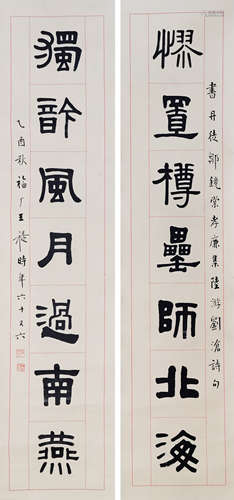 書丹徒鄒鏡棠孝廉集陸游劉滄詩句
置樽罍師北海
獨䪩風月過南燕
乙酉秋福厂王禔時年六十又六